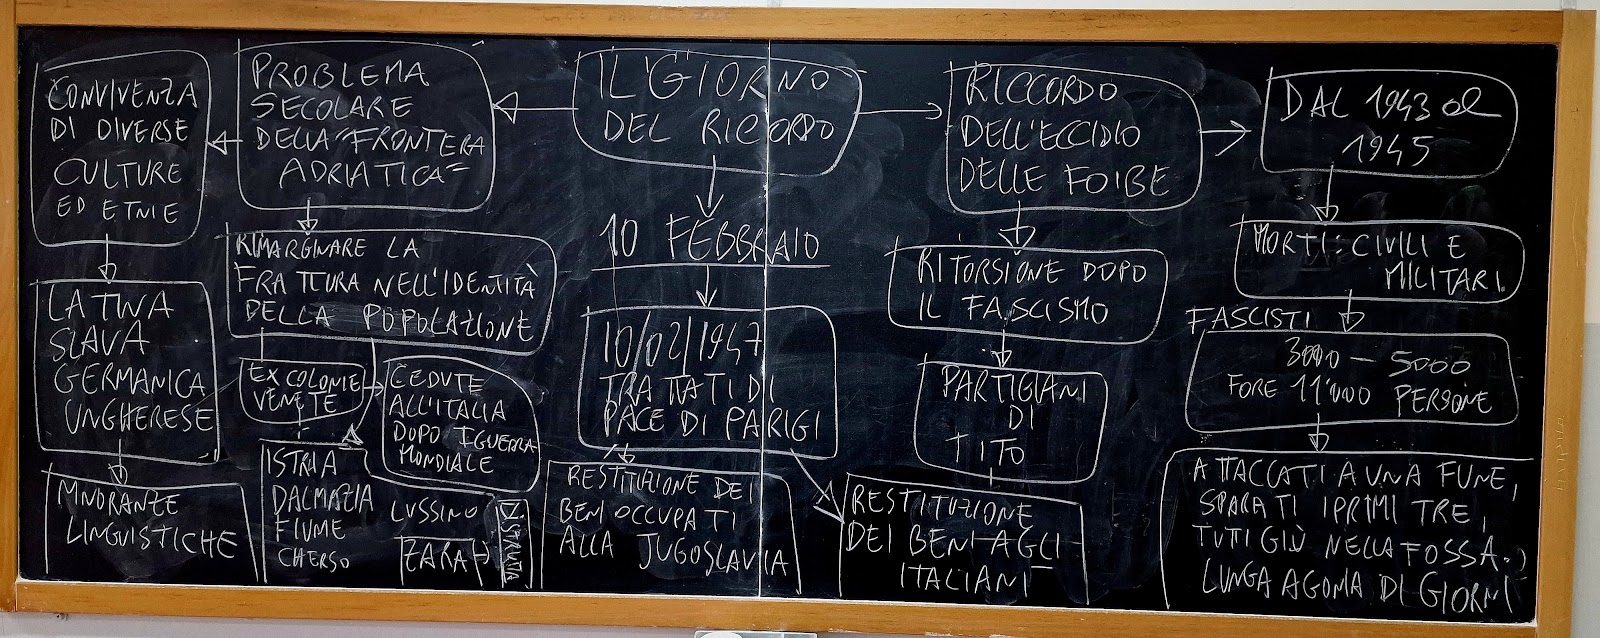 CONVIVENZA
DI DIVERSE
CULTURE
ED ETNIE
LATINA
SLAVA
GERMANICA
UNGHERESE
MINORANZE
LINGUISTICHE
PROBLEMA
SECOLARE
DELLA "FRONTERA
ADRIATICA"
RIMARGINARE LA
FRATTURA NELL'IDENTITÀ
DELLA POPOLAZIONE
EX COLONIE
VENETE
CEDUTE
ALL'ITALIA
DOPO I GUERRA
MONDIALE
ISTRIA
DALMAZIA
FIUME
CHERSO
LUSSINO
ZARA
DISTRUTTA
IL GIORNO
DEL RICORDO
10 FEBBRAIO
10/02/1947
TRATTATI DI
PACE DI PARIGI
RESTITUZIONE DEI
BENI OCCUPATI
ALLA JUGOSLAVIA
RESTITUZIONE
DEI BENI AGLI
ITALIANI
RICCORDO
DELL'ECCIDIO
DELLE FOIBE
RITORSIONE DOPO
IL FASCISMO
PARTIGIANI
DI
TITO
DAL 1943 al
1945
MORTI: CIVILI E
MILITARI
FASCISTI
3000 - 5000
FORE 11'000 PERSONE
ATTACCATI A UNA FUNE,
SPARATI I PRIMI TRE,
TUTI GIÙ NELLA FOSSA.
LUNGA AGONIA DI GIORNI